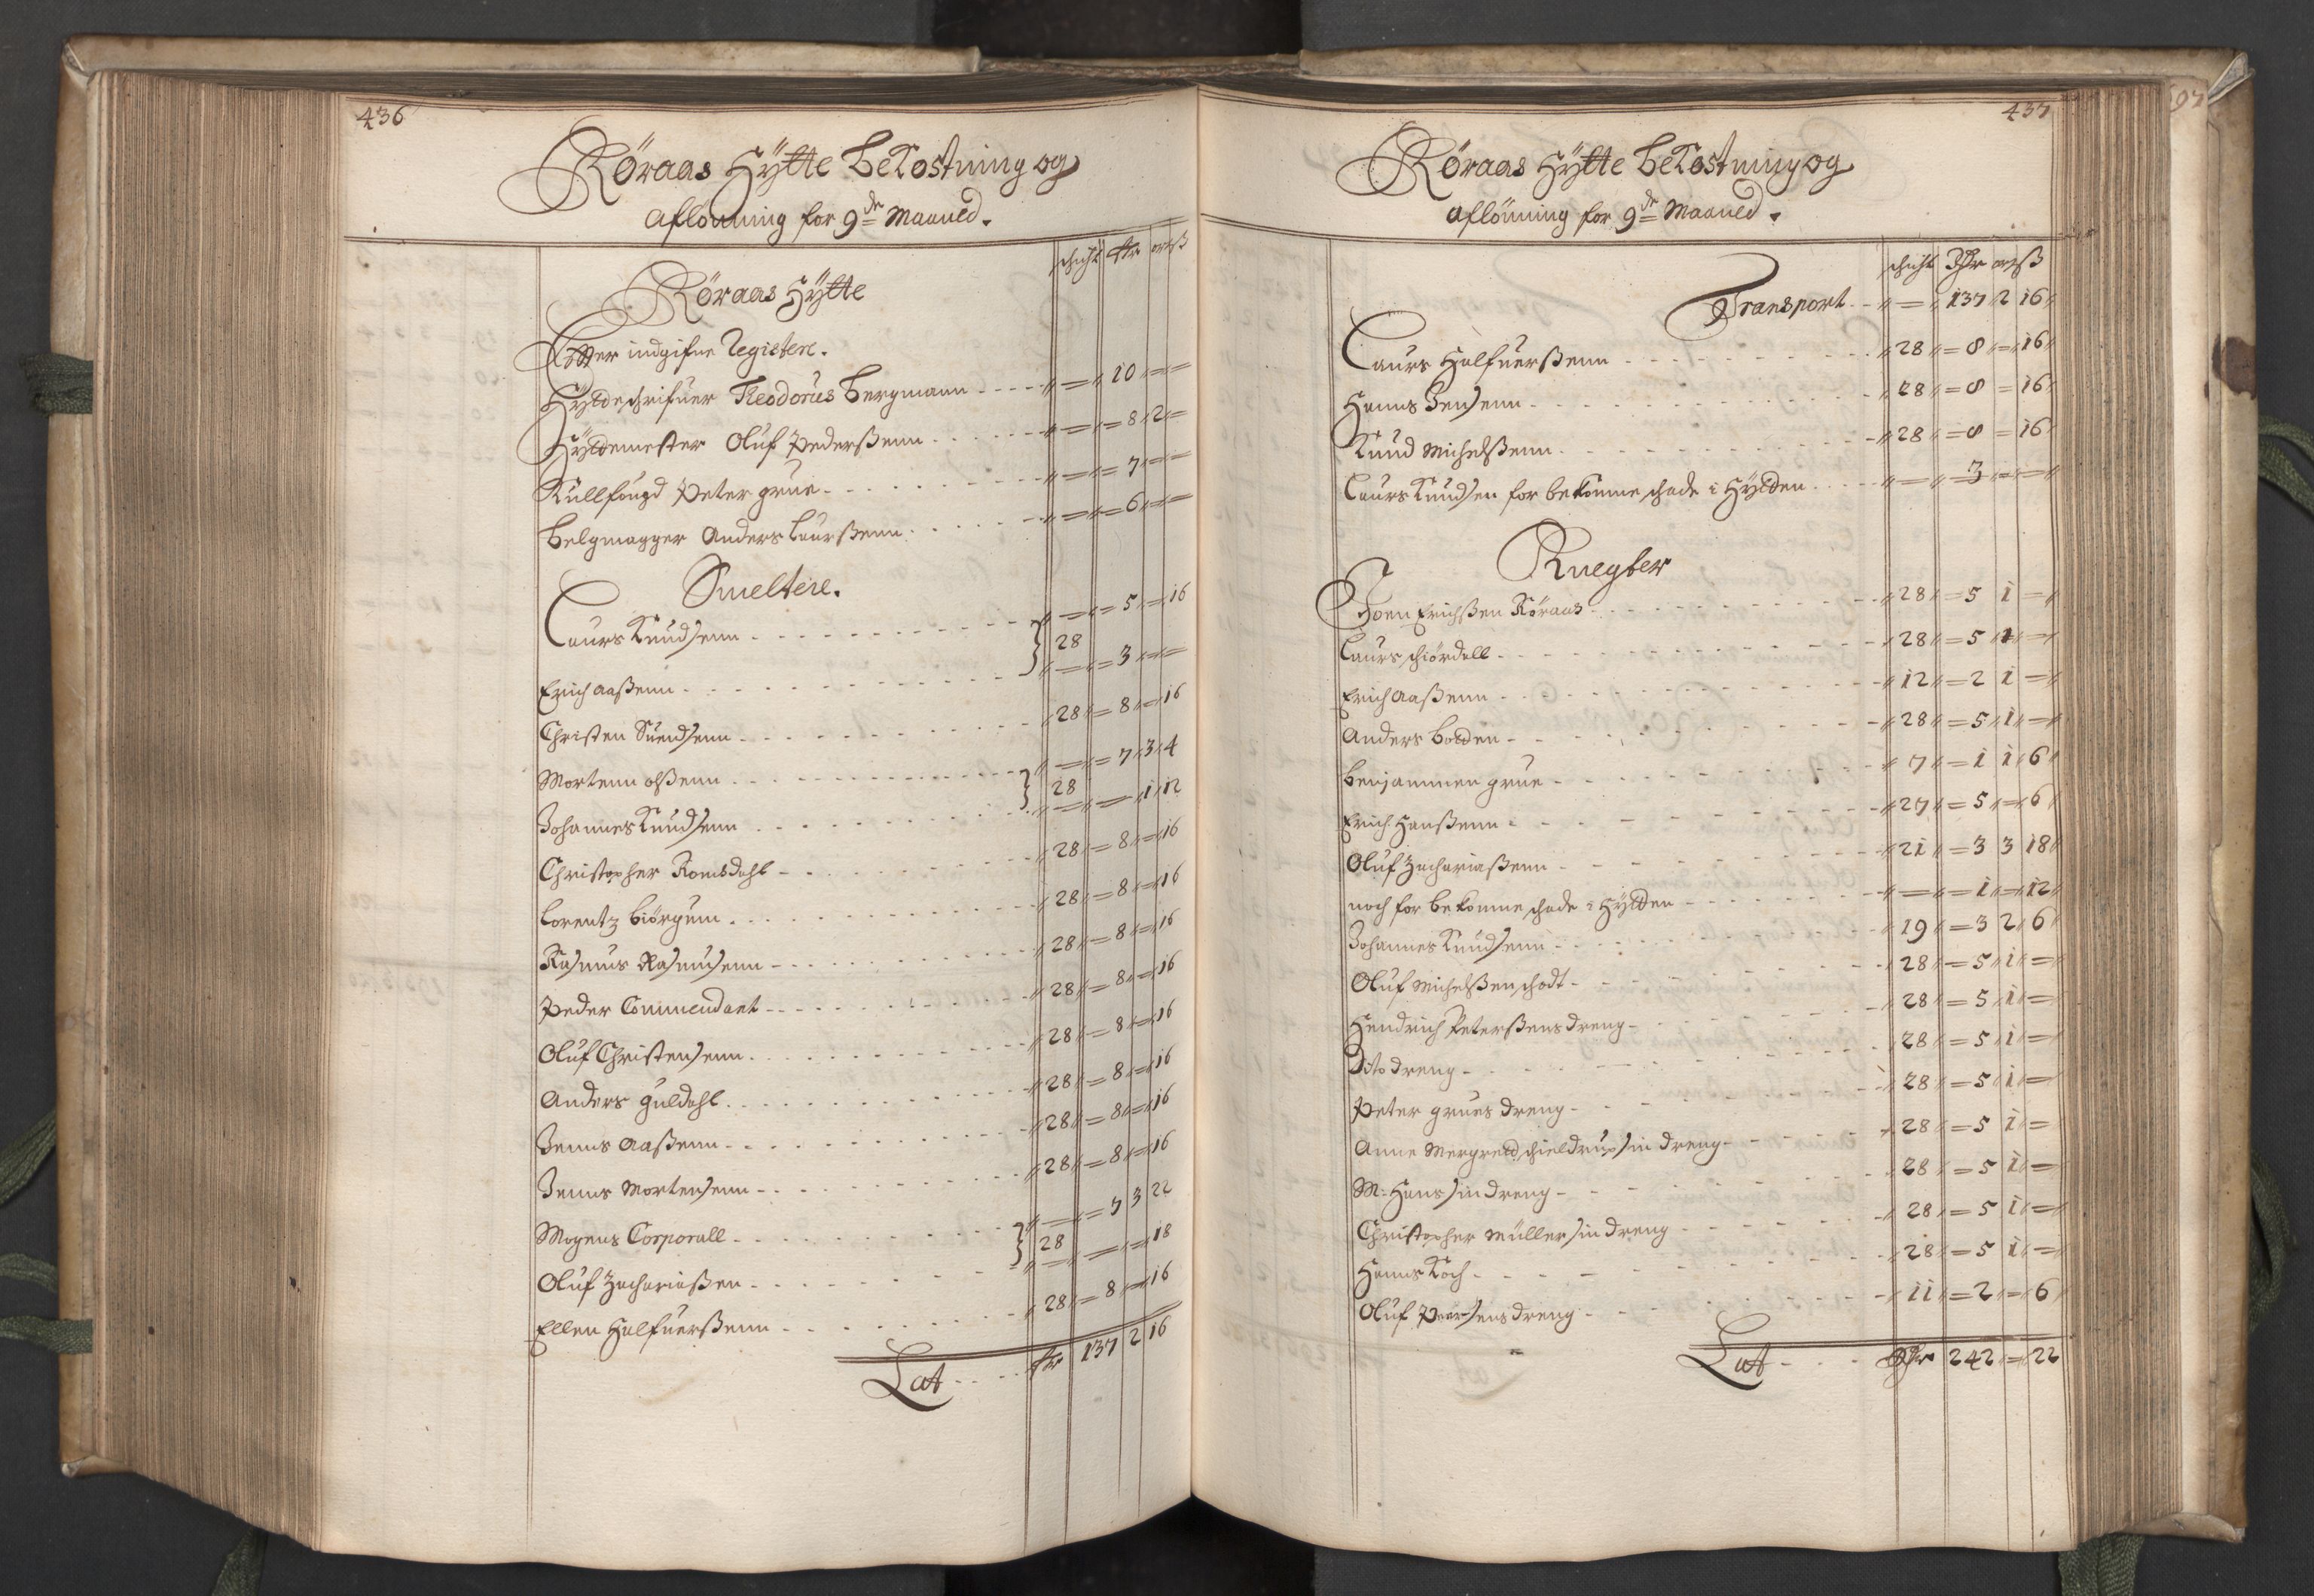 436
Röraas Hÿtte beKostning og
aflönning for 9de Maaned.
schicht dlr ort ß
Röraas Hÿtte
Efter indgifne Registere.
Hÿtteschrifuer Theodorus Bergmann - - - - " = " 10 " = =
Hÿttemester Oluf Pederßenn - - - - " = " = 8 " 2 " =
Kullfougd Peter grue - - - - " = " = 7 " = =
Belgmagger Anders Laurßenn - - - - " = " = 6 " = =
Smeltere.
Laurs Knudsenn - - - - " = " = 5 " = 16
} 28
Erich Aaßenn - - - - " = " = 3 " = =
Christen Suendsenn - - - - " 28 " = 8 " = 16
Mortenn olßenn - - - - " = " = 7 " 3 " 4
} 28
Johannes Knudsenn - - - - " = " = " 1 " 12
Christopher Romsdahl - - - - " 28 " = 8 " = 16
Lorentz biörgum - - - - " 28 " = 8 " = 16
Rasmus Rasmusenn - - - - " 28 " = 8 " = 16
Peder Commendant - - - - " 28 " = 8 " = 16
Oluf Christensenn - - - - " 28 " = 8 " = 16
Anders guldahl - - - - " 28 " = 8 " = 16
Jenns Aaßenn - - - - " 28 " = 8 " = 16
Jenns Mortensenn - - - - " 28 " = 8 " = 16
Mogens Corporall - - - - " = " = 7 3 22
} 28
Oluf Zachariaßen - - - - " = " = " = 18
Ellen Halfuerßenn - - - - " 28 " = 8 " = 16
Lat - - - - dlr 137 2 16
437
Röraas Hÿtte beKostning og
aflönning for 9de Maaned.
schicht Dlr ort ß
Transport - - " = " 137 2 16 "
Laurs Halfuerßenn - - - - " 28 " = 8 " = 16 "
Hanns Jensenn - - - - " 28 " = 8 = 16 "
Knud Michelßenn - - - - " 28 " = 8 = 16 "
Laurs Knudsen for bekomme schade i Hÿtten - - - - " = " = 3 = = "
Knegter
Joen Erichßen Röraas - - - - " 28 " = 5 1 = "
Laurs schiördall - - - - " 28 " = 5 " 1 " = "
Erich Aaßenn - - - - " 12 " = 2 1 = "
Anders botten - - - - " 28 " = 5 " 1 " = "
Benjammen grue - - - - " 7 " = 1 1 " 6 "
Erich Hanßenn - - - - " 27 " = 5 " = 6 "
Oluf Zachariaßenn - - - - " 21 " = 3 3 18 "
noch for bekomme schade i Hÿtten - - - - " = " = 1 " = 12 "
Johannes Knudsenn - - - - " 19 " = 3 2 " 6 "
Oluf Michelßen schott - - - - " 28 " = 5 " 1 " = "
Hendrich Peterßens dreng - - - - " 28 " = 5 " 1 " = "
Dito dreng - - - - " 28 " = 5 " 1 " = "
Peter grues dreng - - - - " 28 " = 5 " 1 " = "
Anne Mergrett schieldrup sin dreng - - - - " 28 " = 5 1 " =
M: Hans sin dreng - - - - " 28 " = 5 1 " = "
Christopher Müller sin dreng - - - - " 28 " = 5 1 " = "
Hanns Koch - - - - " 28 " = 5 1 " = "
Oluf Peersens dreng - - - - " 11 " = 2 " = 6 "
Lat - - - Dlr 242 " = 22